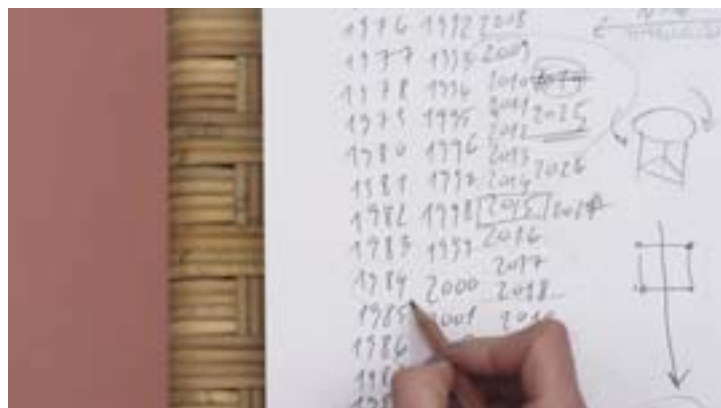 1976 1992 2008
1977 1993 2009
1978 1994 2010 2024
1979 1995 2011 2025
1980 1996 2012
1981 1997 2013 2026
1982 1998 2014
1983 1999 2015
1984 2000 2016
1985 2001 2017
1986 2018